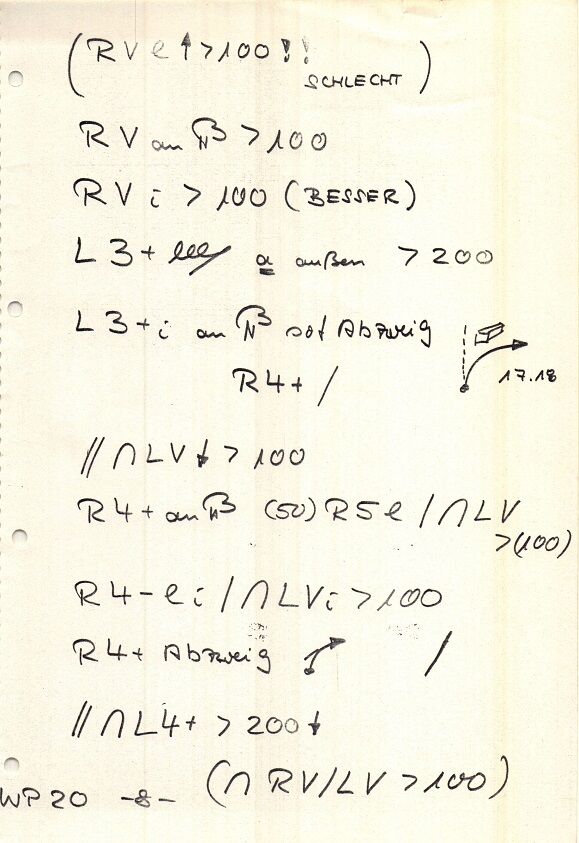 (RV e ↑ > 100 !!
SCHLECHT)
RV an > 100
RV i > 100 (BESSER)
L 3+ a außen > 200
L 3+ i an sof Abzweig
R4+ /
17.18
// ∩ LV ↓ > 100
R4+ an (50) R5 e / ∩ LV
> (100)
R4- e i / ∩ LV i > 100
R4+ Abzweig /
// ∩ L4+ > 200 ↓
(∩ RV/LV > 100)
WP 20 -8-